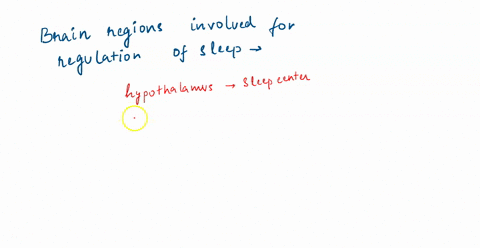 Brain regions involved for
regulation of sleep →
hypothalamus → sleep center